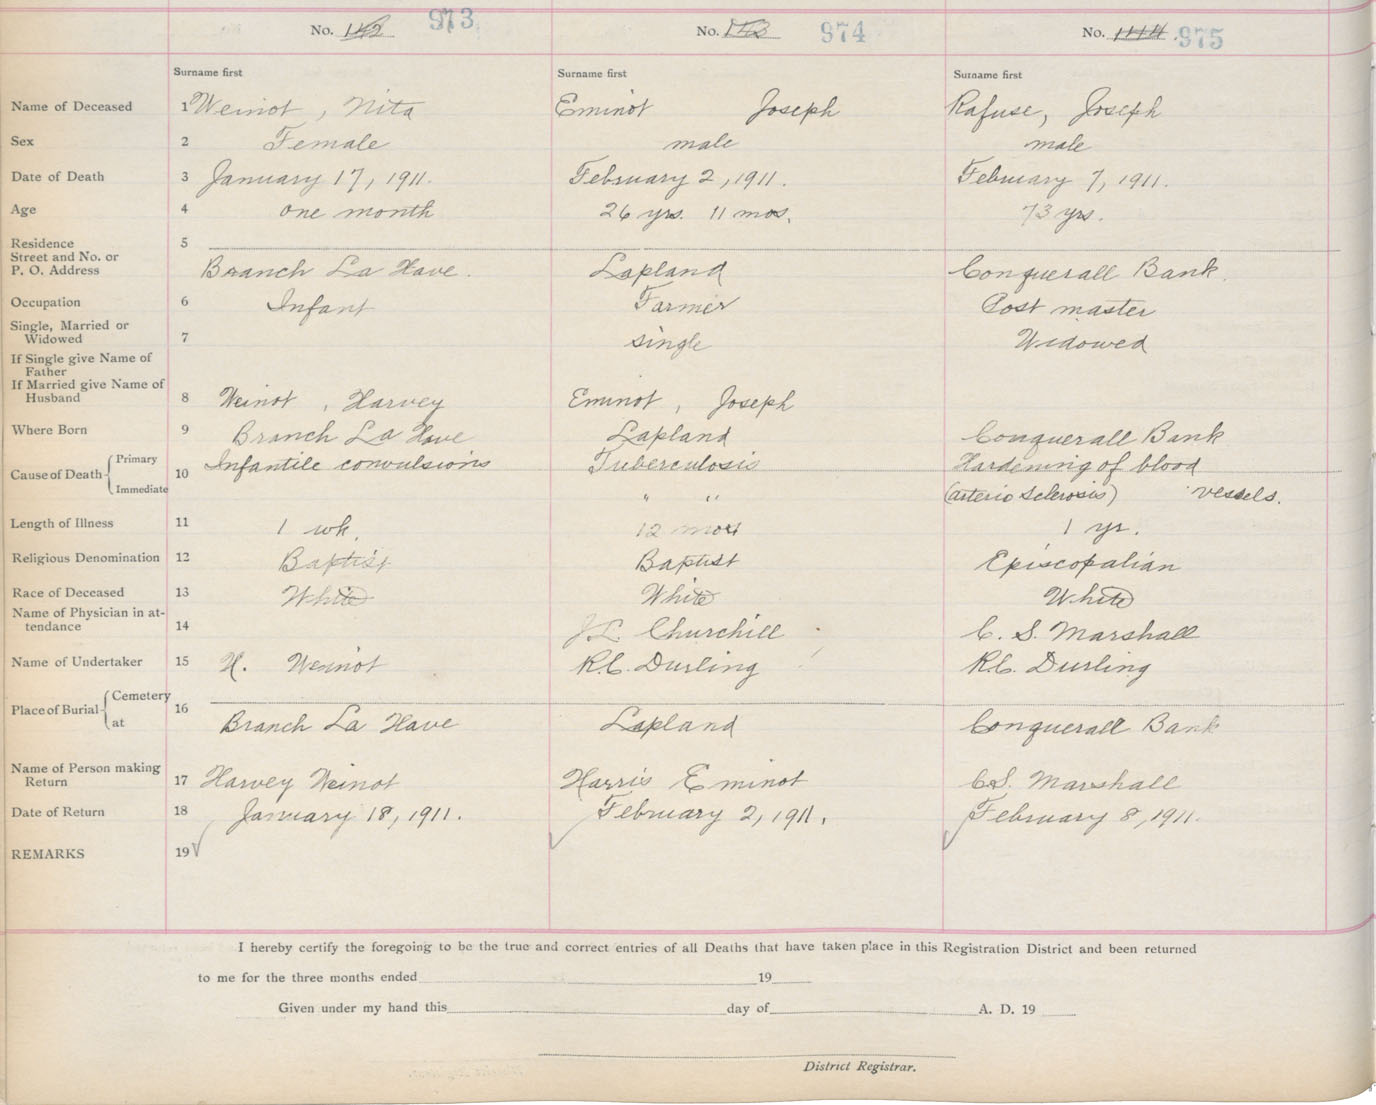 No. 142 973 No. 143 974 No. 144 975
Surname first Surname first Surname first
Name of Deceased 1 Weinot, Nita Eminot Joseph Rafuse, Joseph
Sex 2 Female male male
Date of Death 3 January 17, 1911. February 2, 1911. February 7, 1911.
Age 4 one month 26 yrs. 11 mos. 73 yrs.
Residence 5
Street and No. or
P. O. Address Branch La Have. Lapland Conquerall Bank.
Occupation 6 Infant Farmer Post master
Single, Married or
Widowed 7 single Widowed
If Single give Name of
Father
If Married give Name of
Husband 8 Weinot, Harvey Eminot, Joseph
Where Born 9 Branch La Have Lapland Conquerall Bank
Cause of Death 10 Primary Infantile convulsions Tuberculosis Hardening of blood
Immediate " " (arterio sclerosis) vessels.
Length of Illness 11 1 wk. 12 mos 1 yr.
Religious Denomination 12 Baptist Baptist Episcopalian
Race of Deceased 13 White White White
Name of Physician in at-
tendance 14 J.L. Churchill C. S. Marshall
Name of Undertaker 15 H. Weinot R.C. Durling R.C. Durling
Place of Burial 16 Cemetery
at Branch La Have Lapland Conquerall Bank
Name of Person making
Return 17 Harvey Weinot Harris Eminot C.S. Marshall
Date of Return 18 January 18, 1911. February 2, 1911. February 8, 1911.
REMARKS 19
I hereby certify the foregoing to be the true and correct entries of all Deaths that have taken place in this Registration District and been returned
to me for the three months ended 19
Given under my hand this day of A. D. 19
District Registrar.